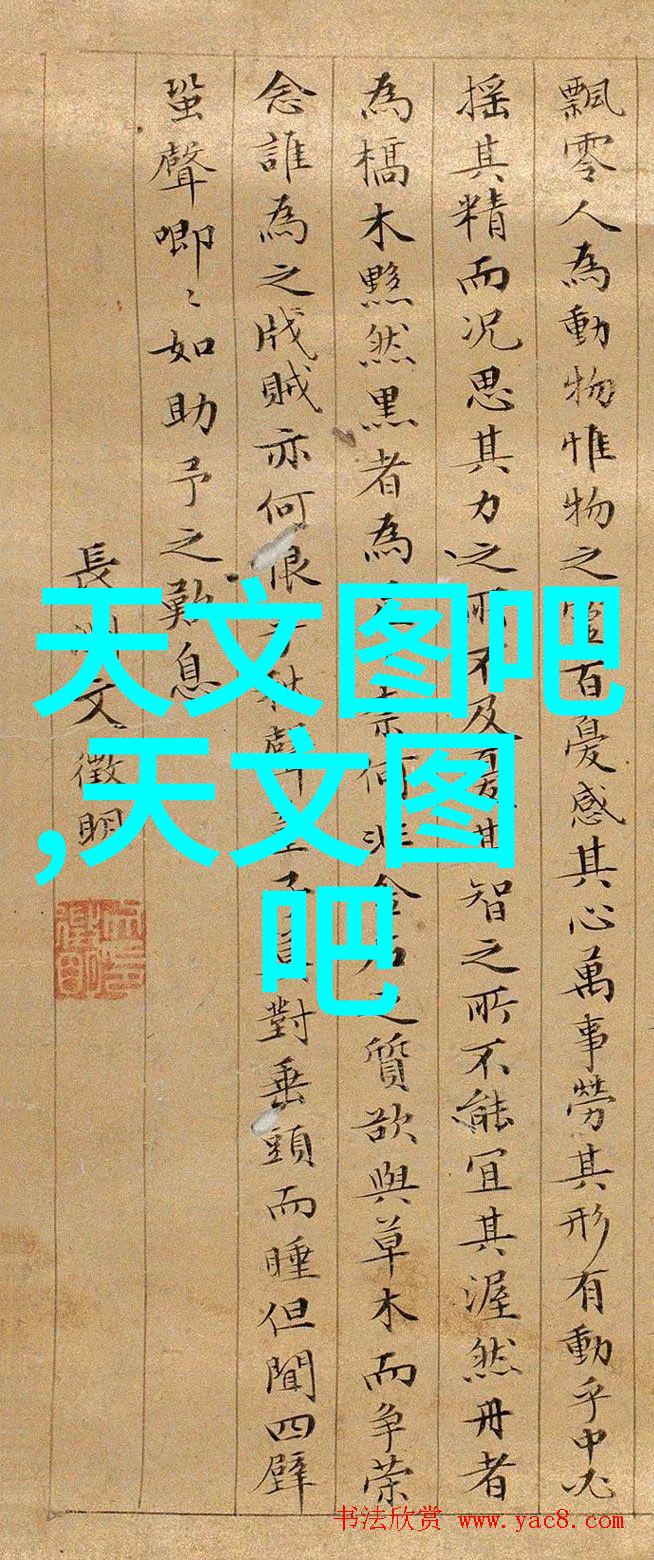 飄零人為動物惟物之靈百憂感其心萬事勞其形有動乎中必
搖其精而況思其力之所不及憂其智之所不能宜其渥然丹者
為槁木黟然黑者為奈何非金石之質欲與草木而爭榮
念誰為之戕賊亦何恨乎秋聲童子莫對垂頭而睡但聞四壁
蛩聲唧〻如助予之歎息
長洲文徵明
天文图吧
,天文图
吧
书法欣赏 www.yac8.com